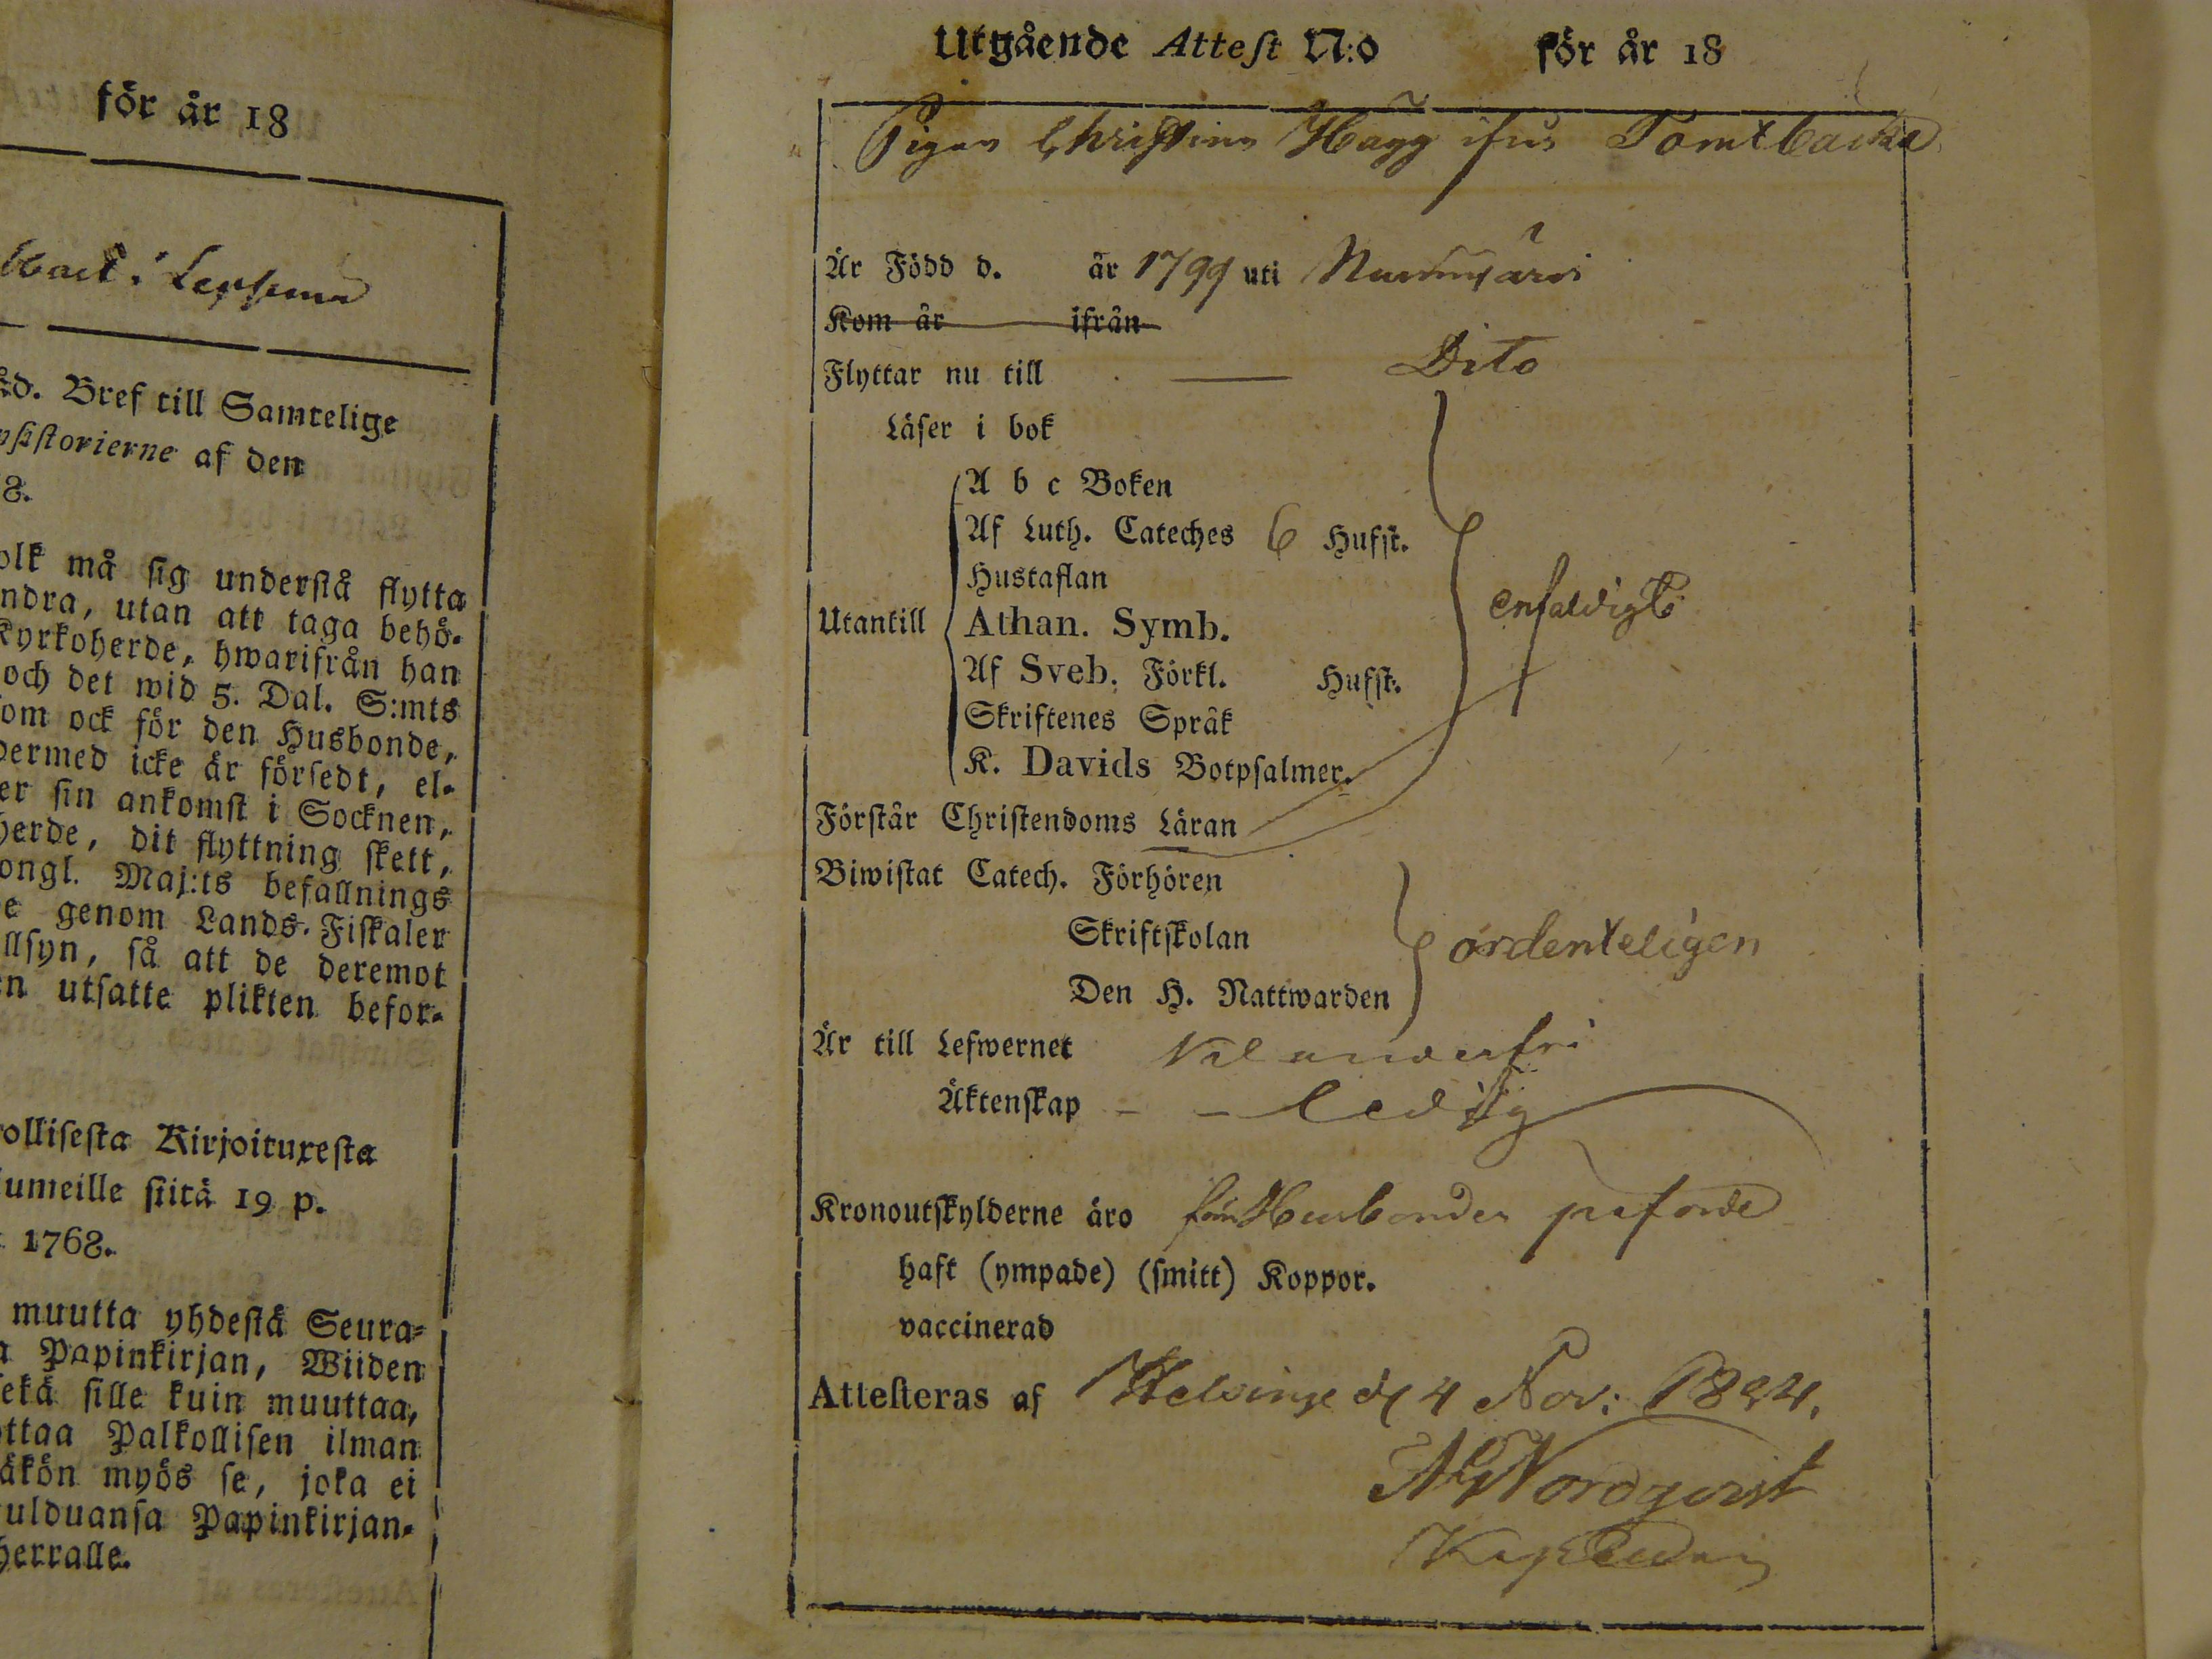 för år 18
i Lepsema
åd. Bref till Samtelige
nsistorierne af den
8.
olk må sig understå flytta
ndra, utan att taga behö-
Kyrkoherde, hwarifrån han
och det wid 5. Dal. S:mts
om ock för den Husbonde,
dermed icke är försedt, el-
er sin ankomst i Socknen,
herde, dit flyttning skett,
ongl. Maj:ts befallnings
e genom Lands-Fiskaler
llsyn, så att de deremot
n utsatte plikten befor-
ollisesta Kirjoituxesta
umeille siitä 19 p.
1768.
muutta yhdestä Seura-
a Papinkirjan, Wiiden
sekä sille kuin muuttaa,
ottaa Palkollisen ilman
äkön myös se, joka ei
tulduansa Papinkirjan-
herralle.
Utgående Attest N:o för år 18
Pigan Christina Hägg ifrån Tomtbacka
Är Född d. år 1799 uti Nurmijärvi
Kom år ifrån
Flyttar nu till Dito
Läser i bok
A b c Boken
Af Luth. Cateches 6 Hufst.
Hustaflan
Utantill Athan. Symb. enfaldigt
Af Sveb. Förkl. Hufst.
Skriftenes Språk
K. Davids Botpsalmer.
Förstår Christendoms Läran
Biwistat Catech. Förhören
Skriftskolan ordenteligen
Den H. Nattwarden
Är till Lefwernet Klanderfri
Äktenskap - - ledig
Kronoutskylderne äro Husbonden påförde
haft (ympade) (smitt) Koppor.
vaccinerad
Attesteras af Helsinge d 4 Nov: 1824.
Nordqvist
Kapellan